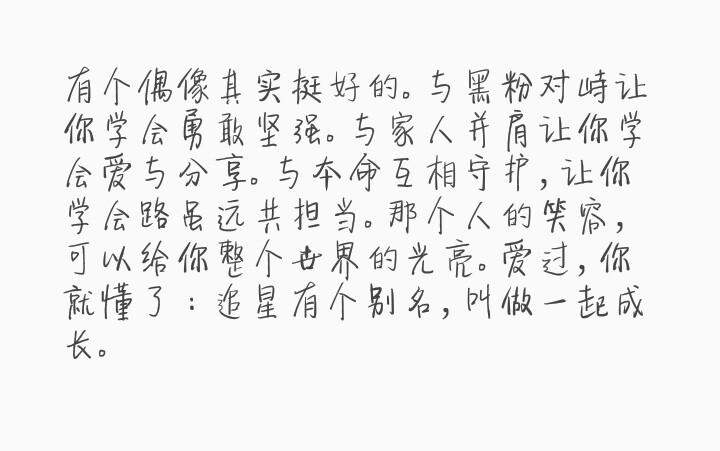 有个偶像其实挺好的。与黑粉对峙让
你学会勇敢坚强。与家人并肩让你学
会爱与分享。与本命互相守护,让你
学会路虽远共担当。那个人的笑容,
可以给你整个世界的光亮。爱过,你
就懂了:追星有个别名,叫做一起成
长。